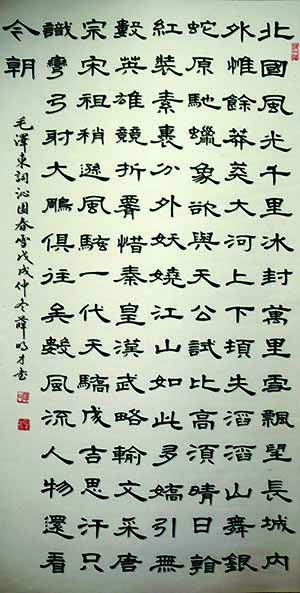 北國風光千里冰封萬里雪飄望長城內
外惟餘莽莽大河上下頓失滔滔山舞銀
蛇原馳蠟象欲與天公試比高須晴日
紅裝素裹分外妖嬈江山如此多嬌引無
數英雄競折腰惜秦皇漢武略輸文采唐
宗宋祖稍遜風騷一代天驕成吉思汗只
識彎弓射大鵰俱往矣數風流人物還看
今朝
毛澤東詞沁園春雪戊戌仲冬薛明才書